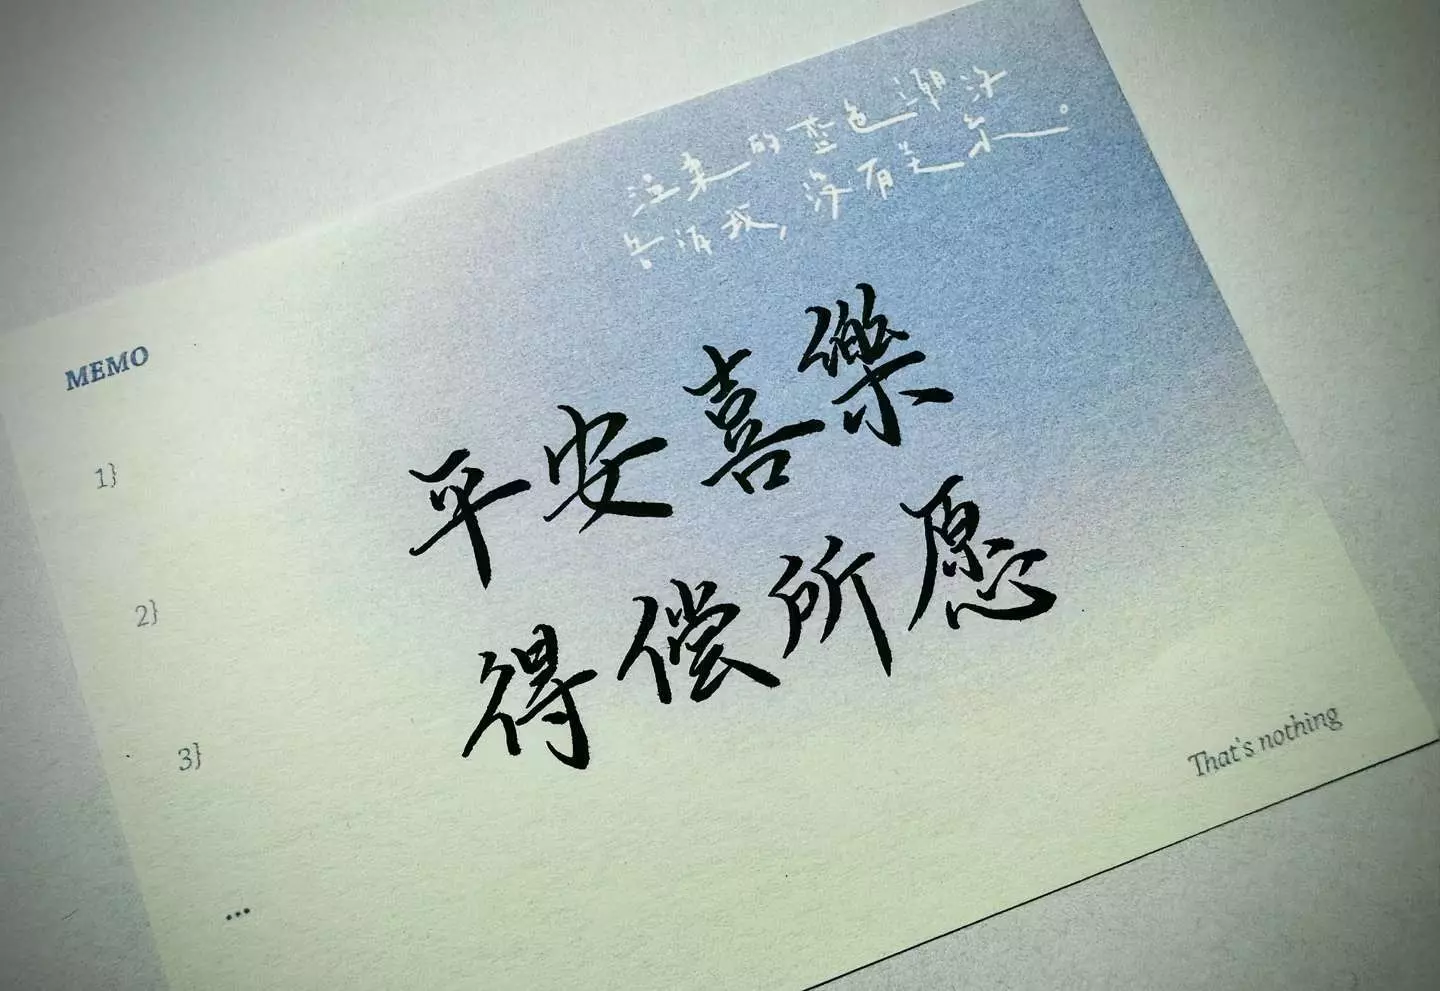 的蓝色潮汐
告诉我,没有关系。
MEMO
平安喜樂
1}
得偿所愿
2}
3}
That's nothing
...